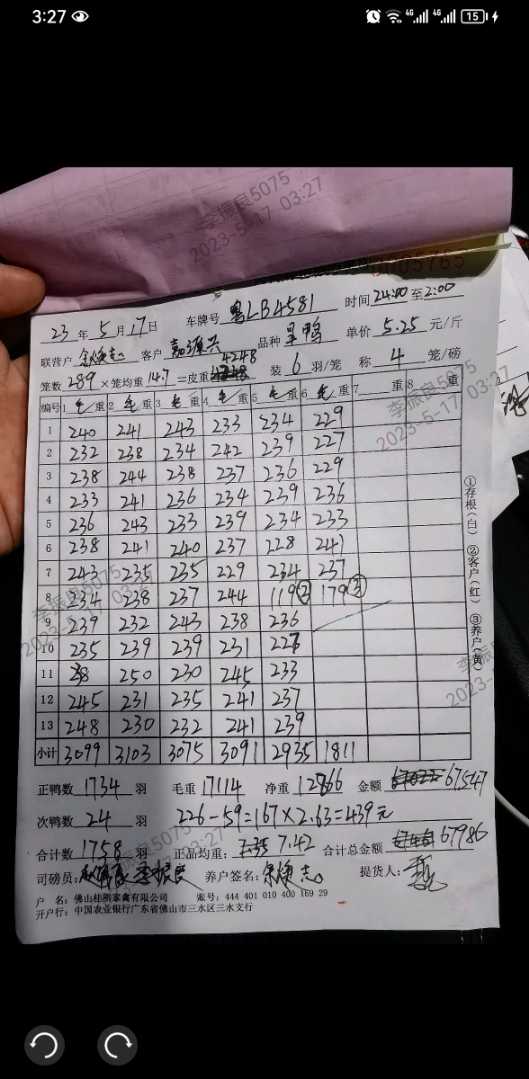 3:27
4G 4G 15
李振良5075
2023-5-17 03:27
23年5月17日 车牌号 粤LB4581 时间24:00至2:00
联营户 客户 嘉源兴 品种 旱鸭 单价 5.25 元/斤
4248
笼数 289 ×笼均重 14.7 =皮重 装 6 羽/笼 称 4 笼/磅
编号 1毛重 2毛重 3毛重 4毛重 5毛重 6毛重 7 重 8 重
1 240 241 243 233 234 229
2 232 238 234 242 239 227
3 238 244 238 237 236 229
4 233 241 236 234 239 236
5 236 243 233 239 234 233
6 238 241 240 237 228 241
7 243 235 235 229 234 237
8 234 238 237 244 119② 179③
9 239 232 243 238 236
10 235 239 239 231 227
11 238 250 230 245 233
12 245 231 235 241 237
13 248 230 232 241 239
小计 3099 3103 3075 3091 2935 1811
①存根(白) ②客户(红) ③养户(黄)
正鸭数 1734 羽 毛重 17114 净重 12866 金额 67547
次鸭数 24 羽 226-59=167×2.63=439元
合计数 1758 羽 正品均重: 7.42 合计总金额 67986
司磅员: 李振良 养户签名: 提货人:
户 名: 佛山桂柳家禽有限公司 账号: 444 401 010 400 169 29
开户行: 中国农业银行广东省佛山市三水区三水支行
李振良5075
2023-5-17 03:27